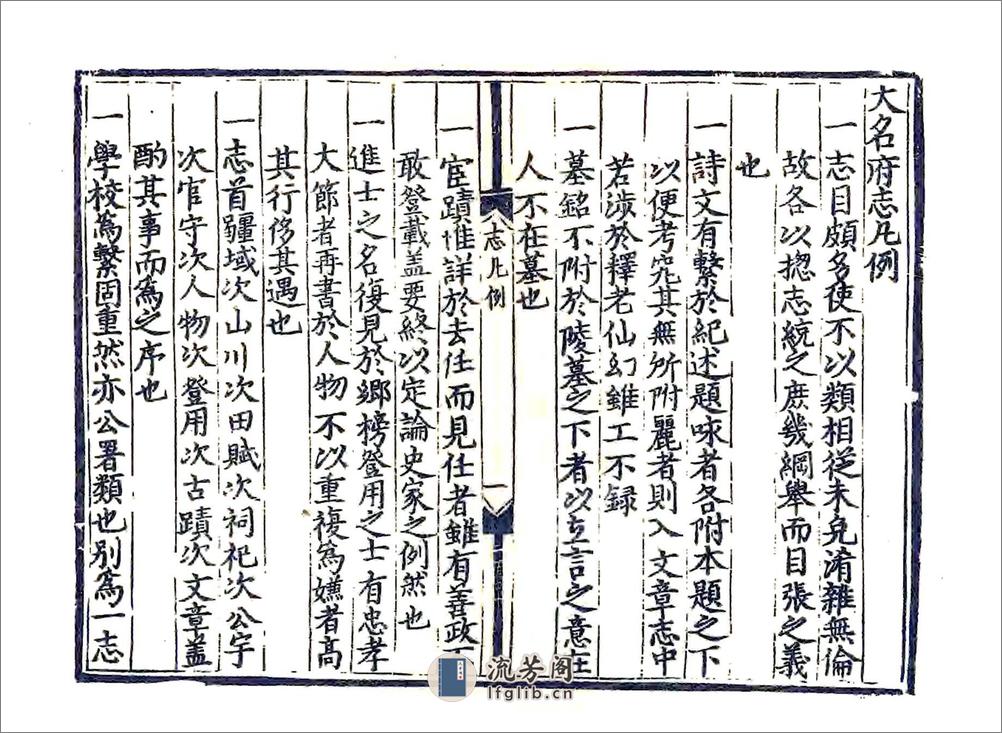 大名府志凡例
一志目頗多使不以類相從未免淆雜無倫
故各以揔志統之庶幾綱舉而目張之義
也
一詩文有繫於紀述題咏者各附本題之下
以便考究其無所附麗者則入文章志中
若涉於釋老仙幻雖工不録
一墓銘不附於陵墓之下者以立言之意在
人不在墓也
志凡例
一
一宦蹟惟詳於去任而見任者雖有善政不
敢登載盖要終以定論史家之例然也
一進士之名復見於鄉榜登用之士有忠孝
大節者再書於人物不以重複為嫌者高
其行侈其遇也
一志首疆域次山川次田賦次祠祀次公宇
次官守次人物次登用次古蹟次文章盖
酌其事而為之序也
一學校為繫固重然亦公署類也別為一志
流芳阁
lfglib.cn